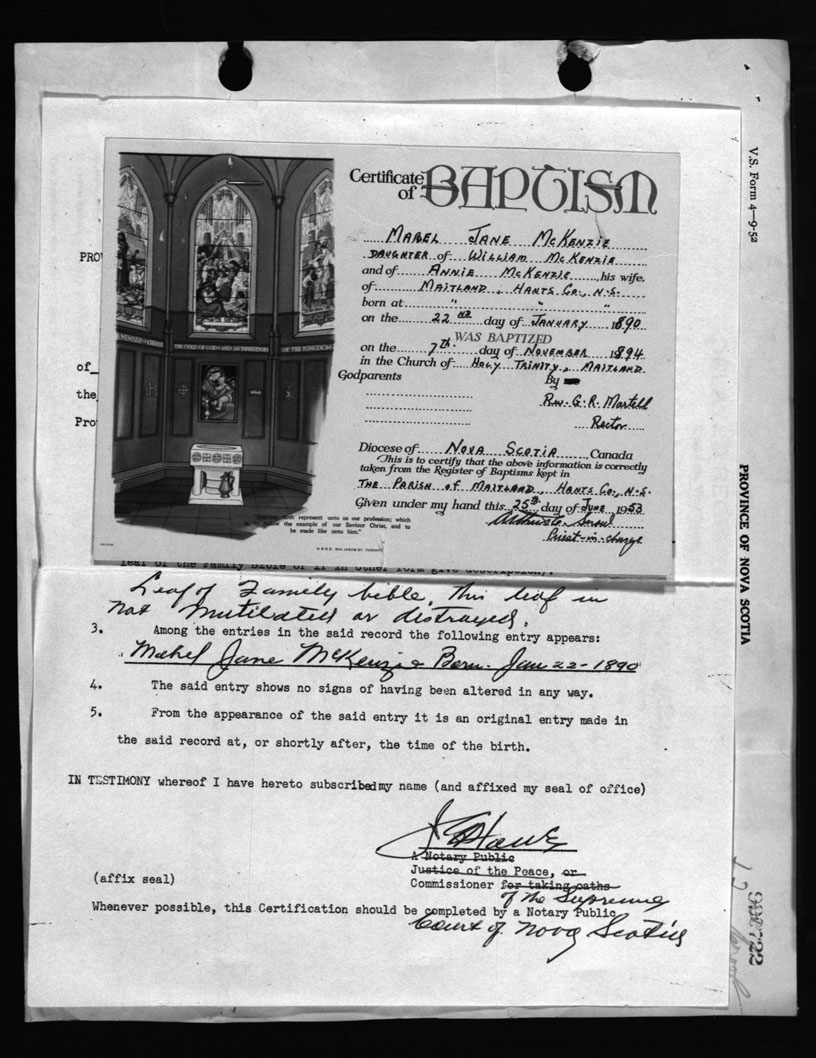 Certificate of BAPTISM
MABEL JANE MCKENZIE
DAUGHTER of WILLIAM MCKENZIE
and of ANNIE MCKENZIE, his wife,
of MAITLAND, HANTS CO., N.S.
born at " " "
on the 22ND day of JANUARY 1890
WAS BAPTIZED
on the 7th day of NOVEMBER 1894
in the Church of HOLY TRINITY, MAITLAND
Godparents By
Rev. G. R. Martell
Rector
Diocese of NOVA SCOTIA, Canada
This is to certify that the above information is correctly
taken from the Register of Baptisms kept in
THE PARISH OF MAITLAND, HANTS CO., N.S.
Given under my hand this 25th day of JUNE 1953
Priest-in-charge
THE CHILD OF GOD AND AN INHERITOR OF THE KINGDOM
represent unto us our profession; which
the example of our Saviour Christ, and to
be made like unto him."
PRO
of
the
Pro
leaf of the Family Bible or if in other form give description).
Leaf of Family bible, this leaf in
not mutilated or distroyed.
3. Among the entries in the said record the following entry appears:
Mabel Jane McKenzie Born. Jan 22-1890
4. The said entry shows no signs of having been altered in any way.
5. From the appearance of the said entry it is an original entry made in
the said record at, or shortly after, the time of the birth.
IN TESTIMONY whereof I have hereto subscribed my name (and affixed my seal of office)
A Notary Public
Justice of the Peace, or
(affix seal)
Commissioner for taking oaths
of the Supreme
Whenever possible, this Certification should be completed by a Notary Public
Court of Nova Scotia
V.S. Form 4—9-52
PROVINCE OF NOVA SCOTIA